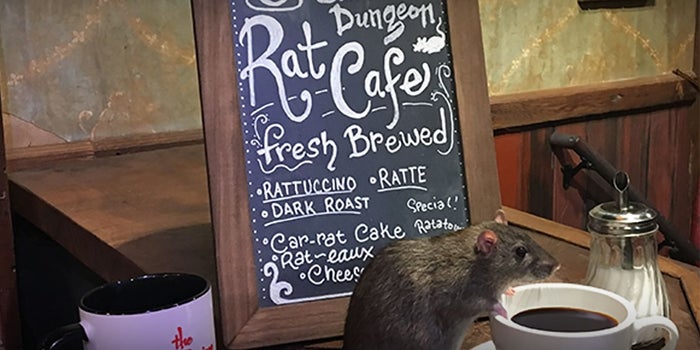 Dungeon
Rat Cafe
fresh Brewed
• RATTUCCINO • RATTE
• DARK ROAST
Special!
• Car-rat Cake
• Rat-eaux
• Cheese
the